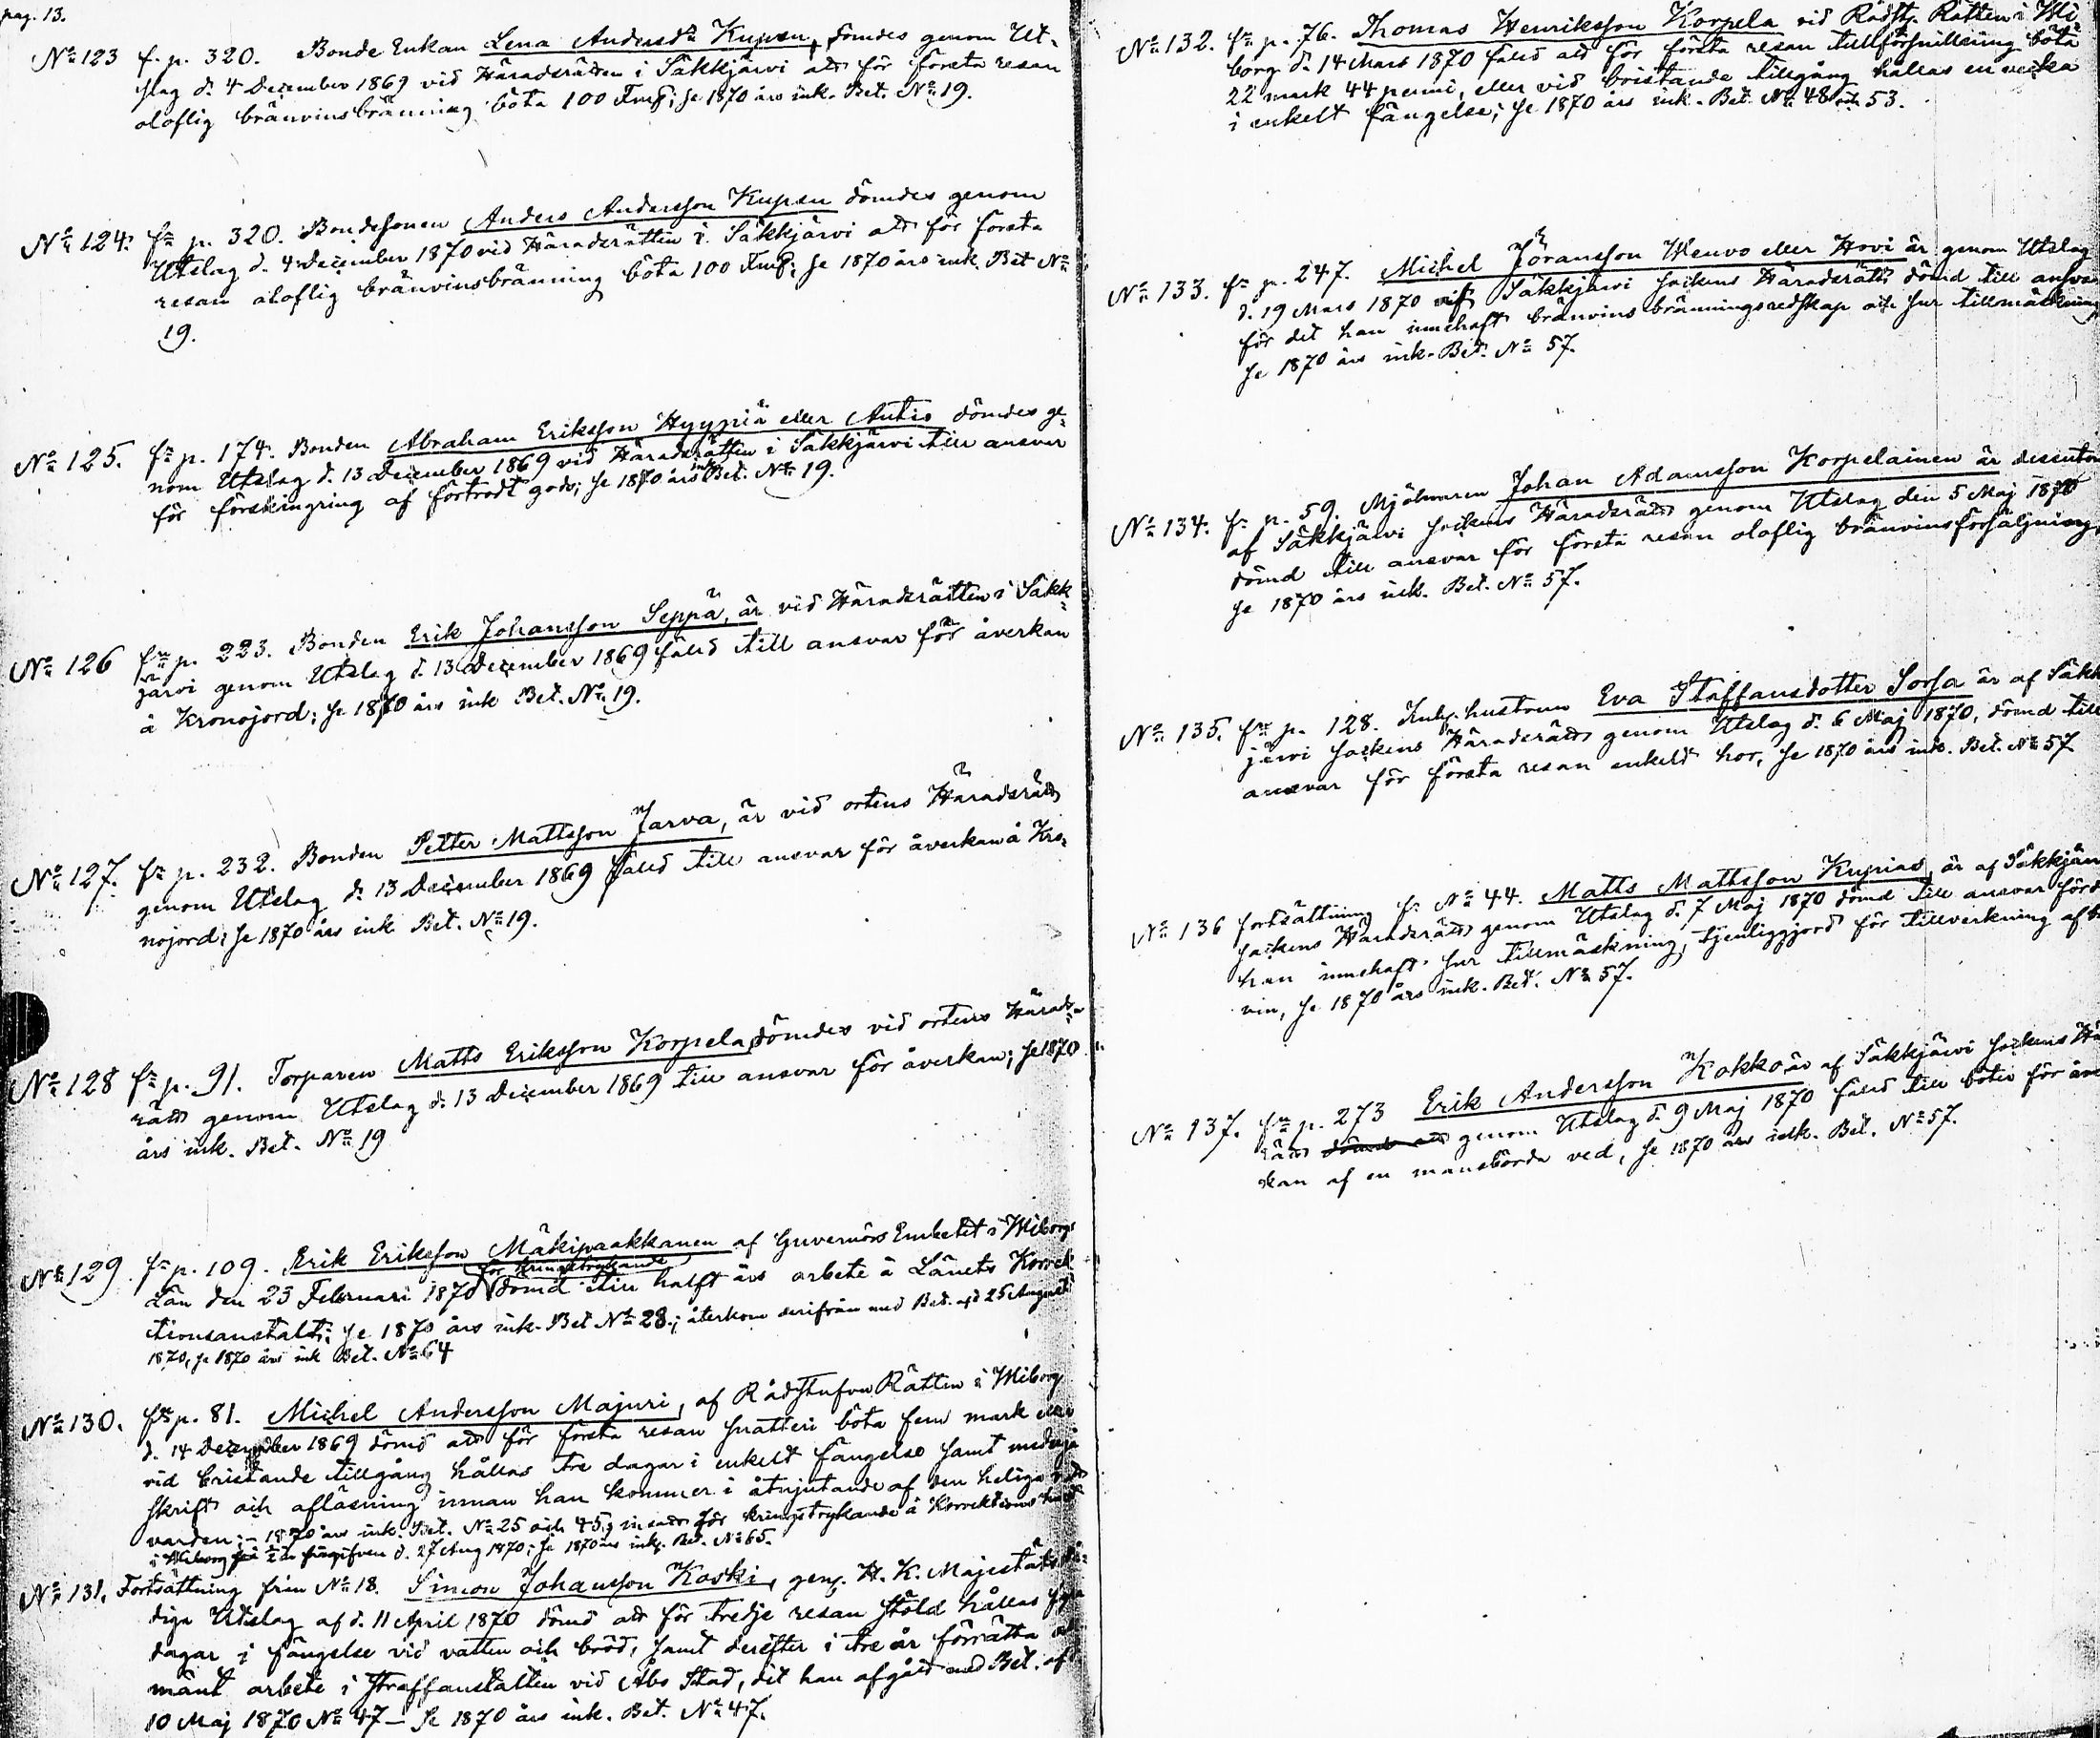 pag. 13.
No 123 f. p. 320. Bonde Enkan Lena Andersdr Kupsu, dömdes genom Ut-
slag d. 4 December 1869 vid Häradsrätten i Säkkjärvi att för första resan
oloflig bränvinsbränning böta 100 Fmk; Se 1870 års ink. Bet. No 19.
No 124. fr p. 320. Bondesonen Anders Andersson Kupsu dömdes genom
Utslag d. 4 December 1870 vid Häradsrätten i Säkkjärvi att för första
resan oloflig bränvinsbränning böta 100 Fmk; Se 1870 års ink. Bet No
19.
No 125. fr p. 174. Bonden Abraham Eriksson Hyypiä eller Antis dömdes ge-
nom Utslag d. 13 December 1869 vid Häradsrätten i Säkkjärvi till ansvar
för förskingring af förtrodt gods; Se 1870 års ink Bet. No 19.
No 126 fr p. 223. Bonden Erik Johansson Seppä, är vid Häradsrätten i Säkk-
järvi genom Utslag d. 13 December 1869 fäld till ansvar för åverkan
å Kronojord; Se 1870 års ink Bet. No 19.
No 127. fr p. 232. Bonden Petter Mattsson Jarva, är vid ortens Häradsrätt
genom Utslag d. 13 December 1869 fäld till ansvar för åverkan å Kro-
nojord; Se 1870 års ink Bet. No 19.
No 128 fr p. 91. Torparen Matts Eriksson Korpela dömdes vid ortens Härads-
rätt genom Utslag d. 13 December 1869 till ansvar för åverkan; Se 1870
års ink. Bet. No 19
No 129. fr p. 109. Erik Eriksson Mäkipaakkanen af Guvernörs Embetet i Wiborgs
för kringstrykande
Län den 23 Februari 1870 dömd till halft års arbete å Länets Korrek
tionsanstalt; Se 1870 års ink. Bet No 28.; återkom derifrån med Bet. af d 25 Augusti
1870, Se 1870 års ink Bet. No 64
No 130. fr p. 81. Michel Andersson Majuri, af Rådstufvu Rätten i Wiborg
d. 14 December 1869 dömd att för första resan snatteri böta fem mark eller
vid bristande tillgång hållas tre dagar i enkelt fängelse samt undergå
skrift och aflösning innan han kommer i åtnjutande af den heliga natt
varden; - 1870 års ink. Bet. No 25 och 45; insatt för kringstrykande å Korrektions
i Wiborg d. 27 Aug 1870; Se 1870 års ink. Bet. No 65.
No 131. Fortsättning från No 18. Simon Johansson Koski, gen. H. K. Majestäts nå-
diga Utslag af d. 11 April 1870 dömd att för tredje resan stöld hållas
dagar i fängelse vid vatten och bröd, samt derefter i tre år förrätta all
mänt arbete i Straffanstalten vid Åbo Stad, dit han afgått med Bet. af
10 Maj 1870 No 47 — Se 1870 års ink. Bet. No 47.
No 132. fr p. 76. Thomas Henriksson Korpela vid Rådst. Rätten i Wi-
borg d. 14 Mars 1870 fäld att för första resan tillförsnillning böta
22 mark 44 penni, eller vid bristande tillgång hållas en vecka
i enkelt fängelse; Se 1870 års ink. Bet. No 48 och 53.
No 133. fr p. 247. Michel Jöransson Wenvo eller Hovi är genom Utslag
d. 19 Mars 1870 vid Säkkjärvi Sockens Häradsrätt dömd till ansvar
för det han innehaft bränvinsbränningsredskap och sur tillmäskning
Se 1870 års ink. Bet. No 57.
No 134. fr p. 59. Mjölnaren Johan Adamsson Korpelainen är
af Säkkjärvi Sockens Häradsrätt genom Utslag den 5 Maj 1870
dömd till ansvar för första resan oloflig bränvinsförsäljning,
Se 1870 års ink. Bet. No 57.
No 135. fr p. 128. Inh. hustrun Eva Staffansdotter Sorsa är af Säkk
järvi Sockens Häradsrätt genom Utslag d. 6 Maj 1870, dömd till
ansvar för första resan enkelt hor, Se 1870 års ink. Bet. No 57
No 136 fortsättning fr No 44. Matts Mattsson Kupias, är af Säkkjärvi
Sockens Häradsrätt genom Utslag d. 7 Maj 1870 dömd till ansvar för d
han innehaft sur tillmäskning, tjenliggjord för tillverkning af b
vin, Se 1870 års ink. Bet. No 57.
No 137. fr p. 273 Erik Andersson Kokko är af Säkkjärvi Sockens Hä
rätt dömd att genom Utslag d. 9 Maj 1870 fäld till böter för åve
rkan af en mansbörda ved, Se 1870 års ink. Bet. No 57.